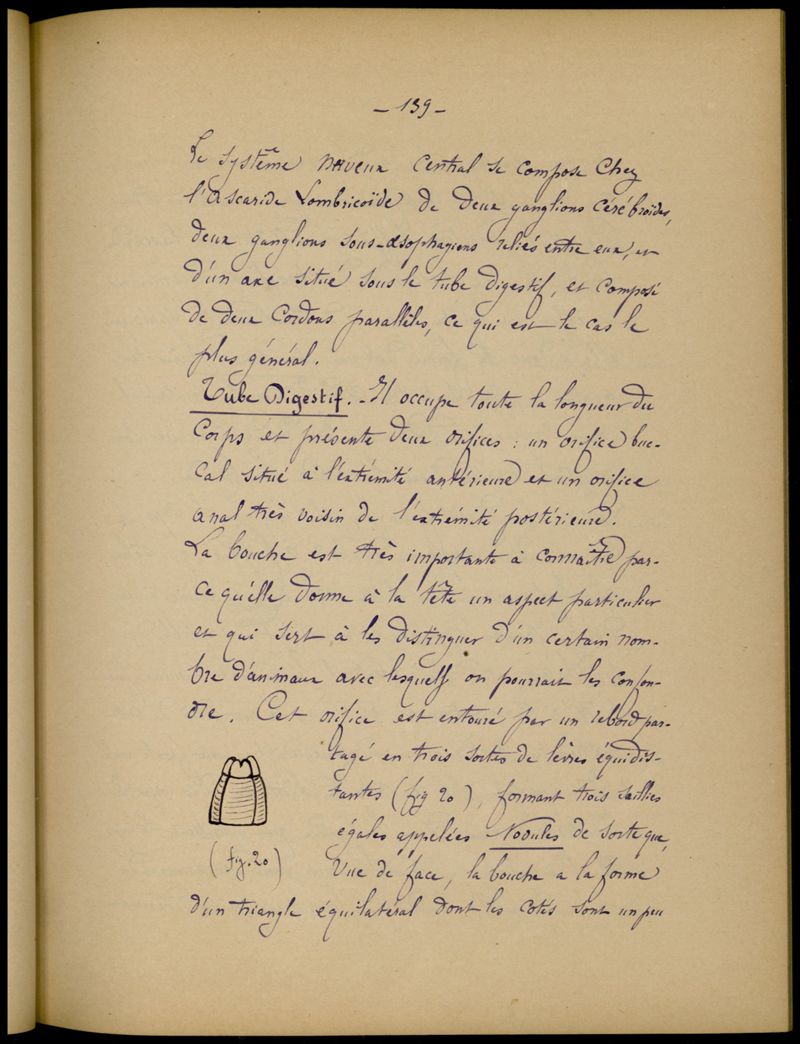 — 139 —
Le système nerveux central se compose chez
l'Ascaride Lombricoïde de deux ganglions cérébroïdes,
deux ganglions sous-œsophagiens reliés entre eux, et
d'un axe situé sous le tube digestif, et composé
de deux cordons parallèles, ce qui est le cas le
plus général.
Tube Digestif. - Il occupe toute la longueur du
corps et présente deux orifices : un orifice buc-
cal situé à l'extrémité antérieure et un orifice
anal très voisin de l'extrémité postérieure.
La bouche est très importante à connaître par-
ce qu'elle donne à la tête un aspect particulier
et qui sert à les distinguer d'un certain nom-
bre d'animaux avec lesquels on pourrait les confon-
dre. Cet orifice est entouré par un rebord par-
tagé en trois sortes de lèvres équidis-
tantes (fig 20), formant trois saillies
égales appelées Nodules de sorte que,
vue de face, la bouche a la forme
(fig. 20)
d'un triangle équilatéral dont les cotés sont un peu